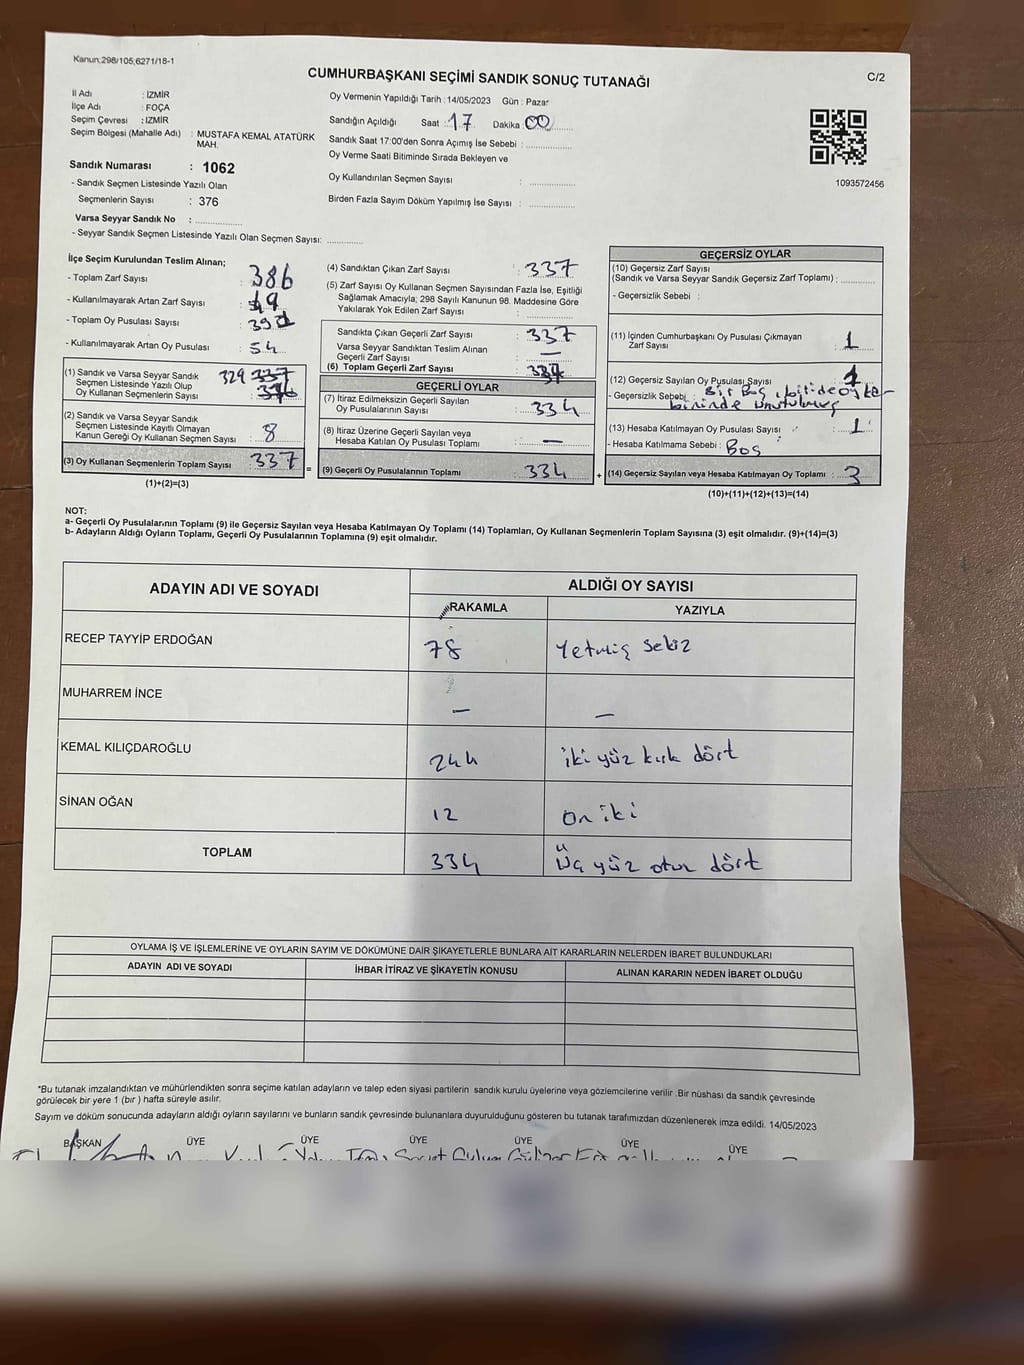 Kanun,298/105,6271/18-1
CUMHURBAŞKANI SEÇİMİ SANDIK SONUÇ TUTANAĞI
C/2
İl Adı : İZMİR
İlçe Adı : FOÇA
Seçim Çevresi : İZMİR
Seçim Bölgesi (Mahalle Adı) : MUSTAFA KEMAL ATATÜRK MAH.
Sandık Numarası : 1062
- Sandık Seçmen Listesinde Yazılı Olan
Seçmenlerin Sayısı : 376
Varsa Seyyar Sandık No : ..............
- Seyyar Sandık Seçmen Listesinde Yazılı Olan Seçmen Sayısı: ..............
Oy Vermenin Yapıldığı Tarih : 14/05/2023 Gün : Pazar
Sandığın Açıldığı Saat : 17 Dakika : 00
Sandık Saat 17:00'den Sonra Açımış İse Sebebi : ..............
Oy Verme Saati Bitiminde Sırada Bekleyen ve
Oy Kullandırılan Seçmen Sayısı : ..............
Birden Fazla Sayım Döküm Yapılmış İse Sayısı : ..............
1093572456
İlçe Seçim Kurulundan Teslim Alınan;
- Toplam Zarf Sayısı : 386
- Kullanılmayarak Artan Zarf Sayısı : 49
- Toplam Oy Pusulası Sayısı :
- Kullanılmayarak Artan Oy Pusulası : 54
(1) Sandık ve Varsa Seyyar Sandık
Seçmen Listesinde Yazılı Olup
Oy Kullanan Seçmenlerin Sayısı : 329 337 376
(2) Sandık ve Varsa Seyyar Sandık
Seçmen Listesinde Kayıtlı Olmayan
Kanun Gereği Oy Kullanan Seçmen Sayısı : 8
(3) Oy Kullanan Seçmenlerin Toplam Sayısı : 337
(1)+(2)=(3)
(4) Sandıktan Çıkan Zarf Sayısı : 337
(5) Zarf Sayısı Oy Kullanan Seçmen Sayısından Fazla İse, Eşitliği
Sağlamak Amacıyla; 298 Sayılı Kanunun 98. Maddesine Göre
Yakılarak Yok Edilen Zarf Sayısı : ..............
Sandıkta Çıkan Geçerli Zarf Sayısı : 337
Varsa Seyyar Sandıktan Teslim Alınan
Geçerli Zarf Sayısı : —
(6) Toplam Geçerli Zarf Sayısı : 337
GEÇERLİ OYLAR
(7) İtiraz Edilmeksizin Geçerli Sayılan
Oy Pusulalarının Sayısı : 334
(8) İtiraz Üzerine Geçerli Sayılan veya
Hesaba Katılan Oy Pusulası Toplamı : —
= (9) Geçerli Oy Pusulalarının Toplamı : 334
GEÇERSİZ OYLAR
(10) Geçersiz Zarf Sayısı
(Sandık ve Varsa Seyyar Sandık Geçersiz Zarf Toplamı) : ..............
- Geçersizlik Sebebi :
(11) İçinden Cumhurbaşkanı Oy Pusulası Çıkmayan
Zarf Sayısı : 1
(12) Geçersiz Sayılan Oy Pusulası Sayısı : 1
- Geçersizlik Sebebi : Bir Boş
birinde unutulmuş
(13) Hesaba Katılmayan Oy Pusulası Sayısı : 1
- Hesaba Katılmama Sebebi : Boş
+ (14) Geçersiz Sayılan veya Hesaba Katılmayan Oy Toplamı : 3
(10)+(11)+(12)+(13)=(14)
NOT:
a- Geçerli Oy Pusulalarının Toplamı (9) ile Geçersiz Sayılan veya Hesaba Katılmayan Oy Toplamı (14) Toplamları, Oy Kullanan Seçmenlerin Toplam Sayısına (3) eşit olmalıdır. (9)+(14)=(3)
b- Adayların Aldığı Oyların Toplamı, Geçerli Oy Pusulalarının Toplamına (9) eşit olmalıdır.
ADAYIN ADI VE SOYADI ALDIĞI OY SAYISI
RAKAMLA YAZIYLA
RECEP TAYYİP ERDOĞAN 78 Yetmiş sekiz
MUHARREM İNCE — —
KEMAL KILIÇDAROĞLU 244 iki yüz kırk dört
SİNAN OĞAN 12 on iki
TOPLAM 334 Üç yüz otuz dört
OYLAMA İŞ VE İŞLEMLERİNE VE OYLARIN SAYIM VE DÖKÜMÜNE DAİR ŞİKAYETLERLE BUNLARA AİT KARARLARIN NELERDEN İBARET BULUNDUKLARI
ADAYIN ADI VE SOYADI İHBAR İTİRAZ VE ŞİKAYETİN KONUSU ALINAN KARARIN NEDEN İBARET OLDUĞU
*Bu tutanak imzalandıktan ve mühürlendikten sonra seçime katılan adayların ve talep eden siyasi partilerin sandık kurulu üyelerine veya gözlemcilerine verilir .Bir nüshası da sandık çevresinde
görülecek bir yere 1 (bir ) hafta süreyle asılır.
Sayım ve döküm sonucunda adayların aldığı oyların sayılarını ve bunların sandık çevresinde bulunanlara duyurulduğunu gösteren bu tutanak tarafımızdan düzenlenerek imza edildi. 14/05/2023
BAŞKAN ÜYE ÜYE ÜYE ÜYE ÜYE ÜYE